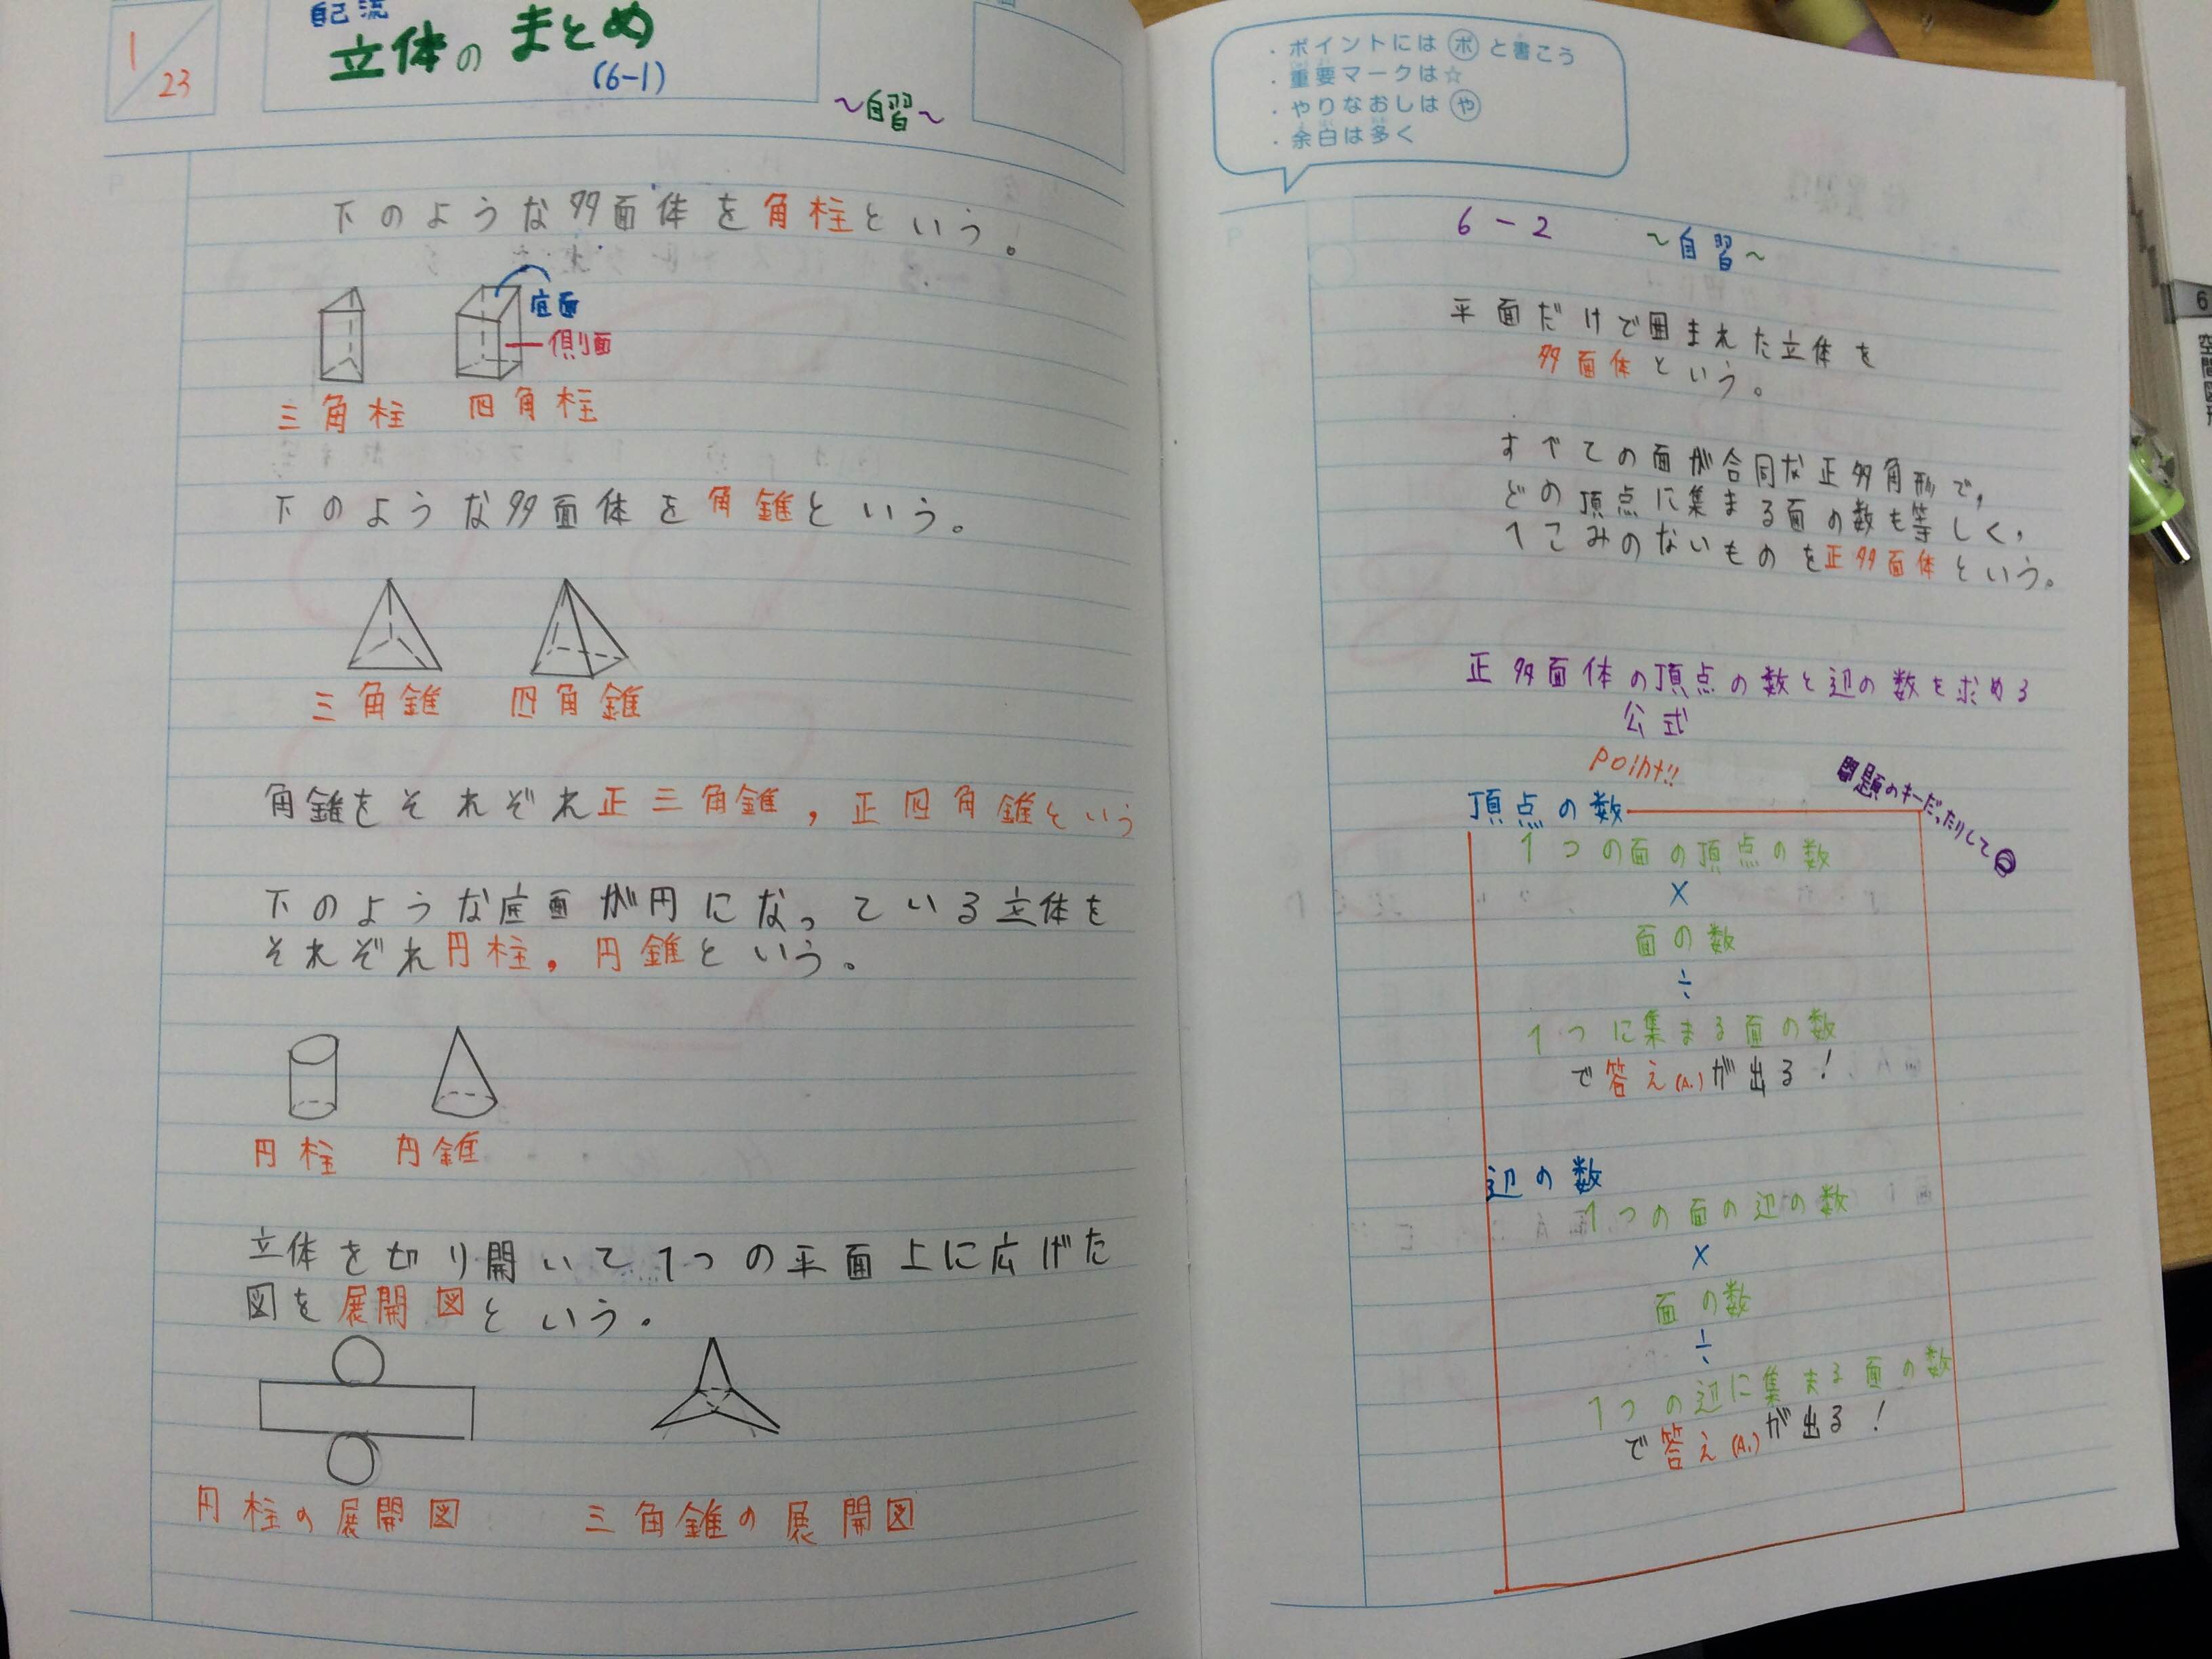 1/23
自己流
立体のまとめ
(6-1)
~自習~
下のような多面体を角柱という。
底面
側面
三角柱 四角柱
下のような多面体を角錐という。
三角錐 四角錐
角錐をそれぞれ正三角錐，正四角錐という
下のような底面が円になっている立体を
それぞれ円柱，円錐という。
円柱 円錐
立体を切り開いて1つの平面上に広げた
図を展開図という。
円柱の展開図 三角錐の展開図
・ポイントには㋭と書こう
・重要マークは☆
・やりなおしは や
・余白は多く
6-2 ~自習~
平面だけで囲まれた立体を
多面体という。
すべての面が合同な正多角形で，
どの頂点に集まる面の数も等しく，
へこみのないものを正多面体という。
正多面体の頂点の数と辺の数を求める
公式
Point!!
問題のキーだったりして
頂点の数
1つの面の頂点の数
×
面の数
÷
1つに集まる面の数
で答え(A.)が出る!
辺の数
1つの面の辺の数
×
面の数
÷
1つの辺に集まる面の数
で答え(A.)が出る!
6
空間図形